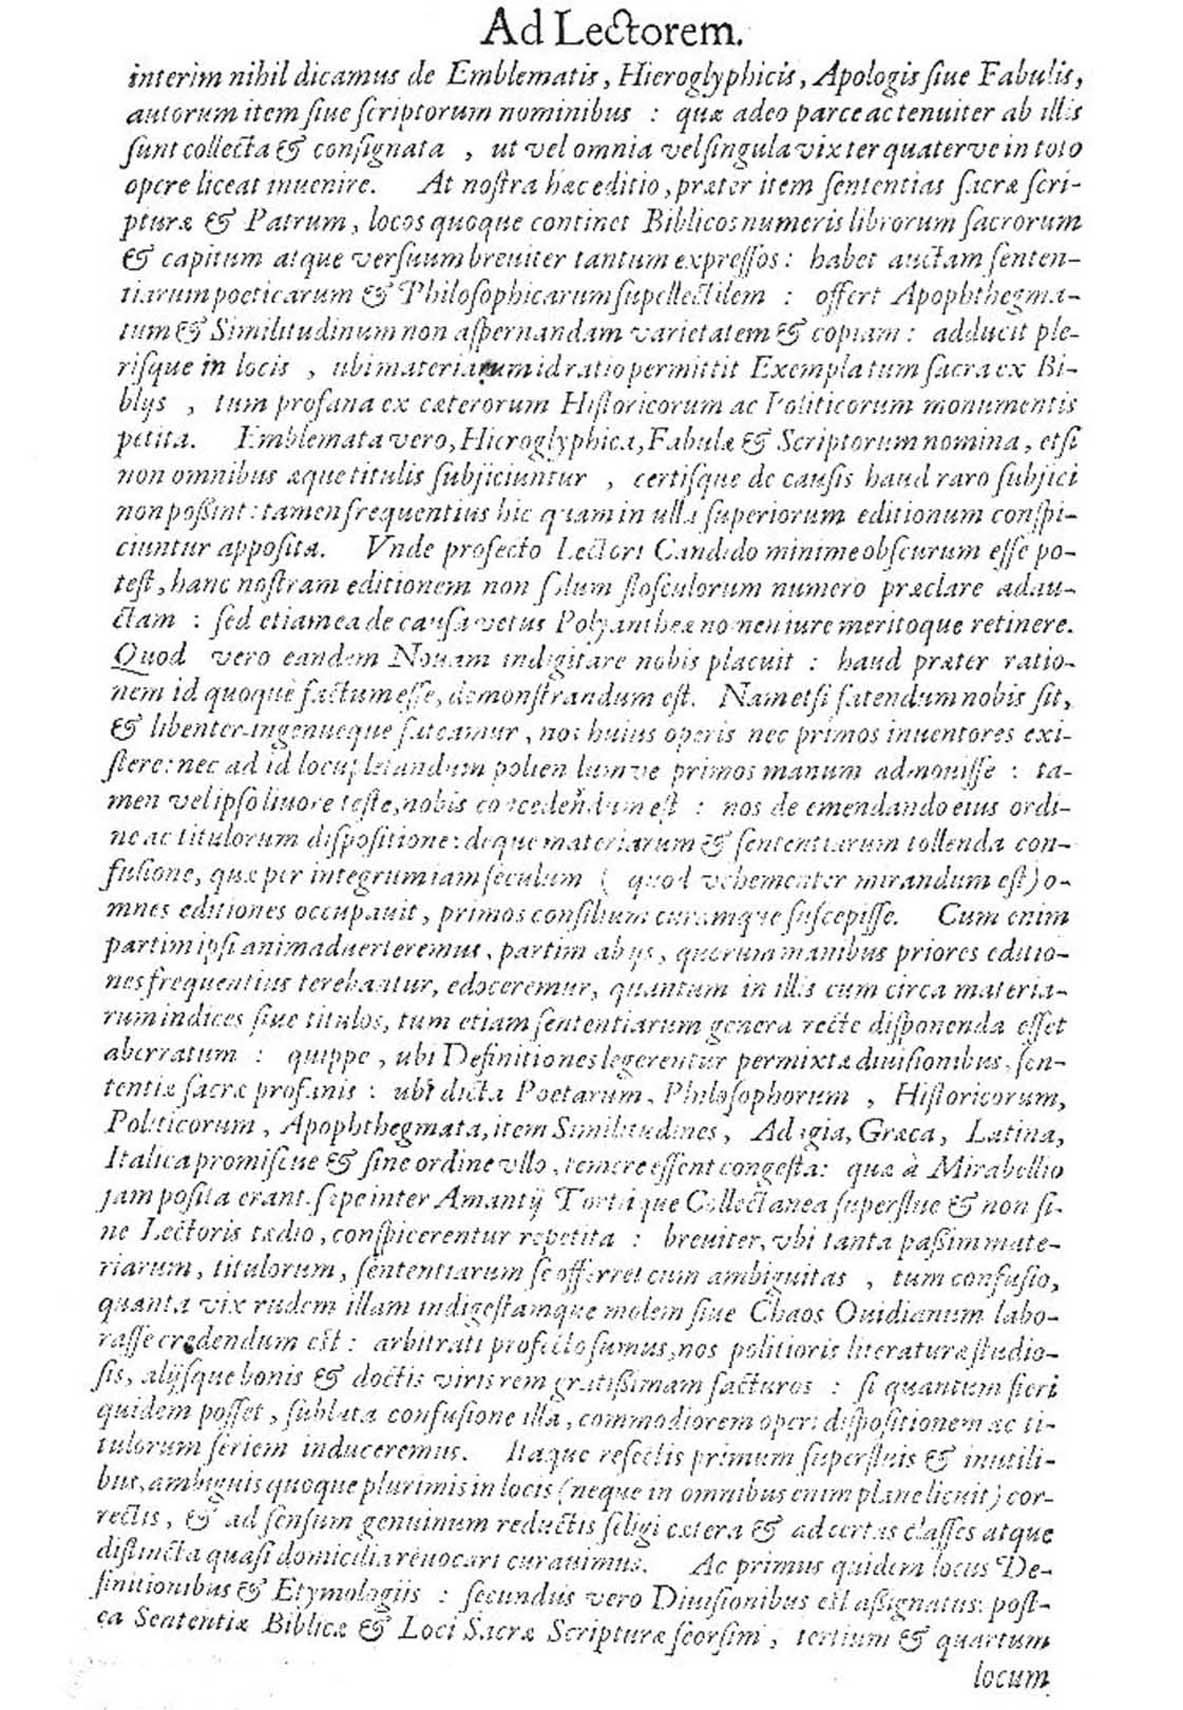 Ad Lectorem.
interim nihil dicamus de Emblematis, Hieroglyphicis, Apologis ſiue Fabulis,
autorum item ſiue ſcriptorum nominibus : quæ adeo parce ac tenuiter ab illis
ſunt collecta & conſignata , ut vel omnia vel ſingula vix ter quaterve in toto
opere liceat inuenire. At noſtra hæc editio, præter item ſententias ſacræ ſcri-
pturæ & Patrum, locos quoque continet Biblicos numeris librorum ſacrorum
& capitum atque verſuum breuiter tantum expreſſos : habet auctam ſenten-
tiarum poeticarum & Philoſophicarum ſupellectilem : offert Apophthegma-
tum & Similitudinum non aſpernandam varietatem & copiam : adducit ple-
riſque in locis , ubi materiarum id ratio permittit Exempla tum ſacra ex Bi-
blijs , tum profana ex cæterorum Hiſtoricorum ac Politicorum monumentis
petita. Emblemata vero, Hieroglyphica, Fabulæ & Scriptorum nomina, etſi
non omnibus æque titulis ſubjiciuntur , certiſque de cauſis haud raro ſubjici
non poßint : tamen frequentius hic quam in ulla ſuperiorum editionum conſpi-
ciuntur appoſita. Vnde profecto Lectori Candido minime obſcurum eſſe po-
teſt, hanc noſtram editionem non ſolum floſculorum numero præclare adau-
ctam : ſed etiam ea de cauſa vetus Polyantheæ nomen iure meritoque retinere.
Quod vero eandem Nouam indigitare nobis placuit : haud præter ratio-
nem id quoque factum eſſe, demonſtrandum eſt. Nam etſi fatendum nobis ſit,
& libenter ingenueque fateamur, nos huius operis nec primos inuentores exi-
ſtere : nec ad id locupletandum poliendumve primos manum admouiſſe : ta-
men vel ipſo liuore teſte, nobis concedendum eſt : nos de emendando eius ordi-
ne ac titulorum diſpoſitione : deque materiarum & ſententiarum tollenda con-
fuſione, quæ per integrum iam ſeculum ( quod vehementer mirandum eſt ) o-
mnes editiones occupauit, primos conſilium curamque ſuſcepiſſe. Cum enim
partim ipſi animaduerteremus, partim ab ijs, quorum manibus priores editio-
nes frequentius terebantur, edoceremur, quantum in illis cum circa materia-
rum indices ſiue titulos, tum etiam ſententiarum genera recte diſponenda eſſet
aberratum : quippe, ubi Definitiones legerentur permixtæ diuiſionibus, ſen-
tentiæ ſacræ profanis : ubi dicta Poetarum, Philoſophorum , Hiſtoricorum,
Politicorum, Apophthegmata, item Similitudines, Adagia, Græca, Latina,
Italica promiſcue & ſine ordine vllo, temere eſſent congeſta : quæ à Mirabellio
jam poſita erant, ſæpe inter Amantij Tortiique Collectanea ſuperflue & non ſi-
ne Lectoris tædio, conſpicerentur repetita : breuiter, vbi tanta paßim mate-
riarum, titulorum, ſententiarum ſe offerret cum ambiguitas , tum confuſio,
quanta vix rudem illam indigeſtamque molem ſiue Chaos Ouidianum labo-
raſſe credendum eſt : arbitrati profecto ſumus, nos politioris literaturæ ſtudio-
ſis, alijſque bonis & doctis viris rem gratißimam facturos : ſi quantum fieri
quidem poſſet, ſublata confuſione illa, commodiorem operi diſpoſitionem ac ti-
tulorum ſeriem induceremus. Itaque reſectis primum ſuperfluis & inutili-
bus, ambiguis quoque plurimis in locis ( neque in omnibus enim plane licuit ) cor-
rectis, & ad ſenſum genuinum reductis ſeligi cætera & ad certas claſſes atque
diſtincta quaſi domicilia revocari curauimus. Ac primus quidem locus De-
finitionibus & Etymologiis : ſecundus vero Diuiſionibus eſt aßignatus : poſt-
ea Sententiæ Biblicæ & Loci Sacræ Scripturæ ſeorſim, tertium & quartum
locum